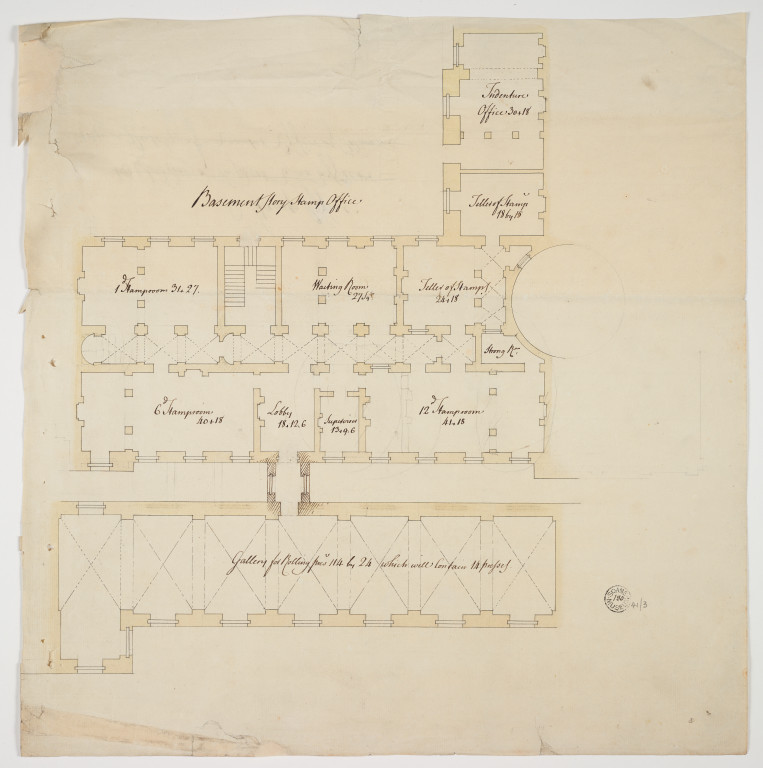 Indenture
Office 30.18
Basement Story Stamp Office
Teller of Stamps
18 by 18
1d Stamproom 31.27.
Waiting Room
Teller of Stamps
24.18
Strong Rm
6d Stamproom
40.18
Lobby
18.12.6
13.9.6
12d Stamproom
41.18
Gallery for Rolling press 114 by 24 which will contain 14 presses
41/3